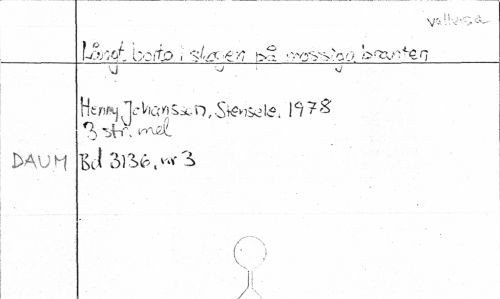 vallvisa
Långt borta i skogen på mossiga branten
Henny Johansson, Stensele. 1978
3 str. mel
DAUM Bd 3136, nr 3